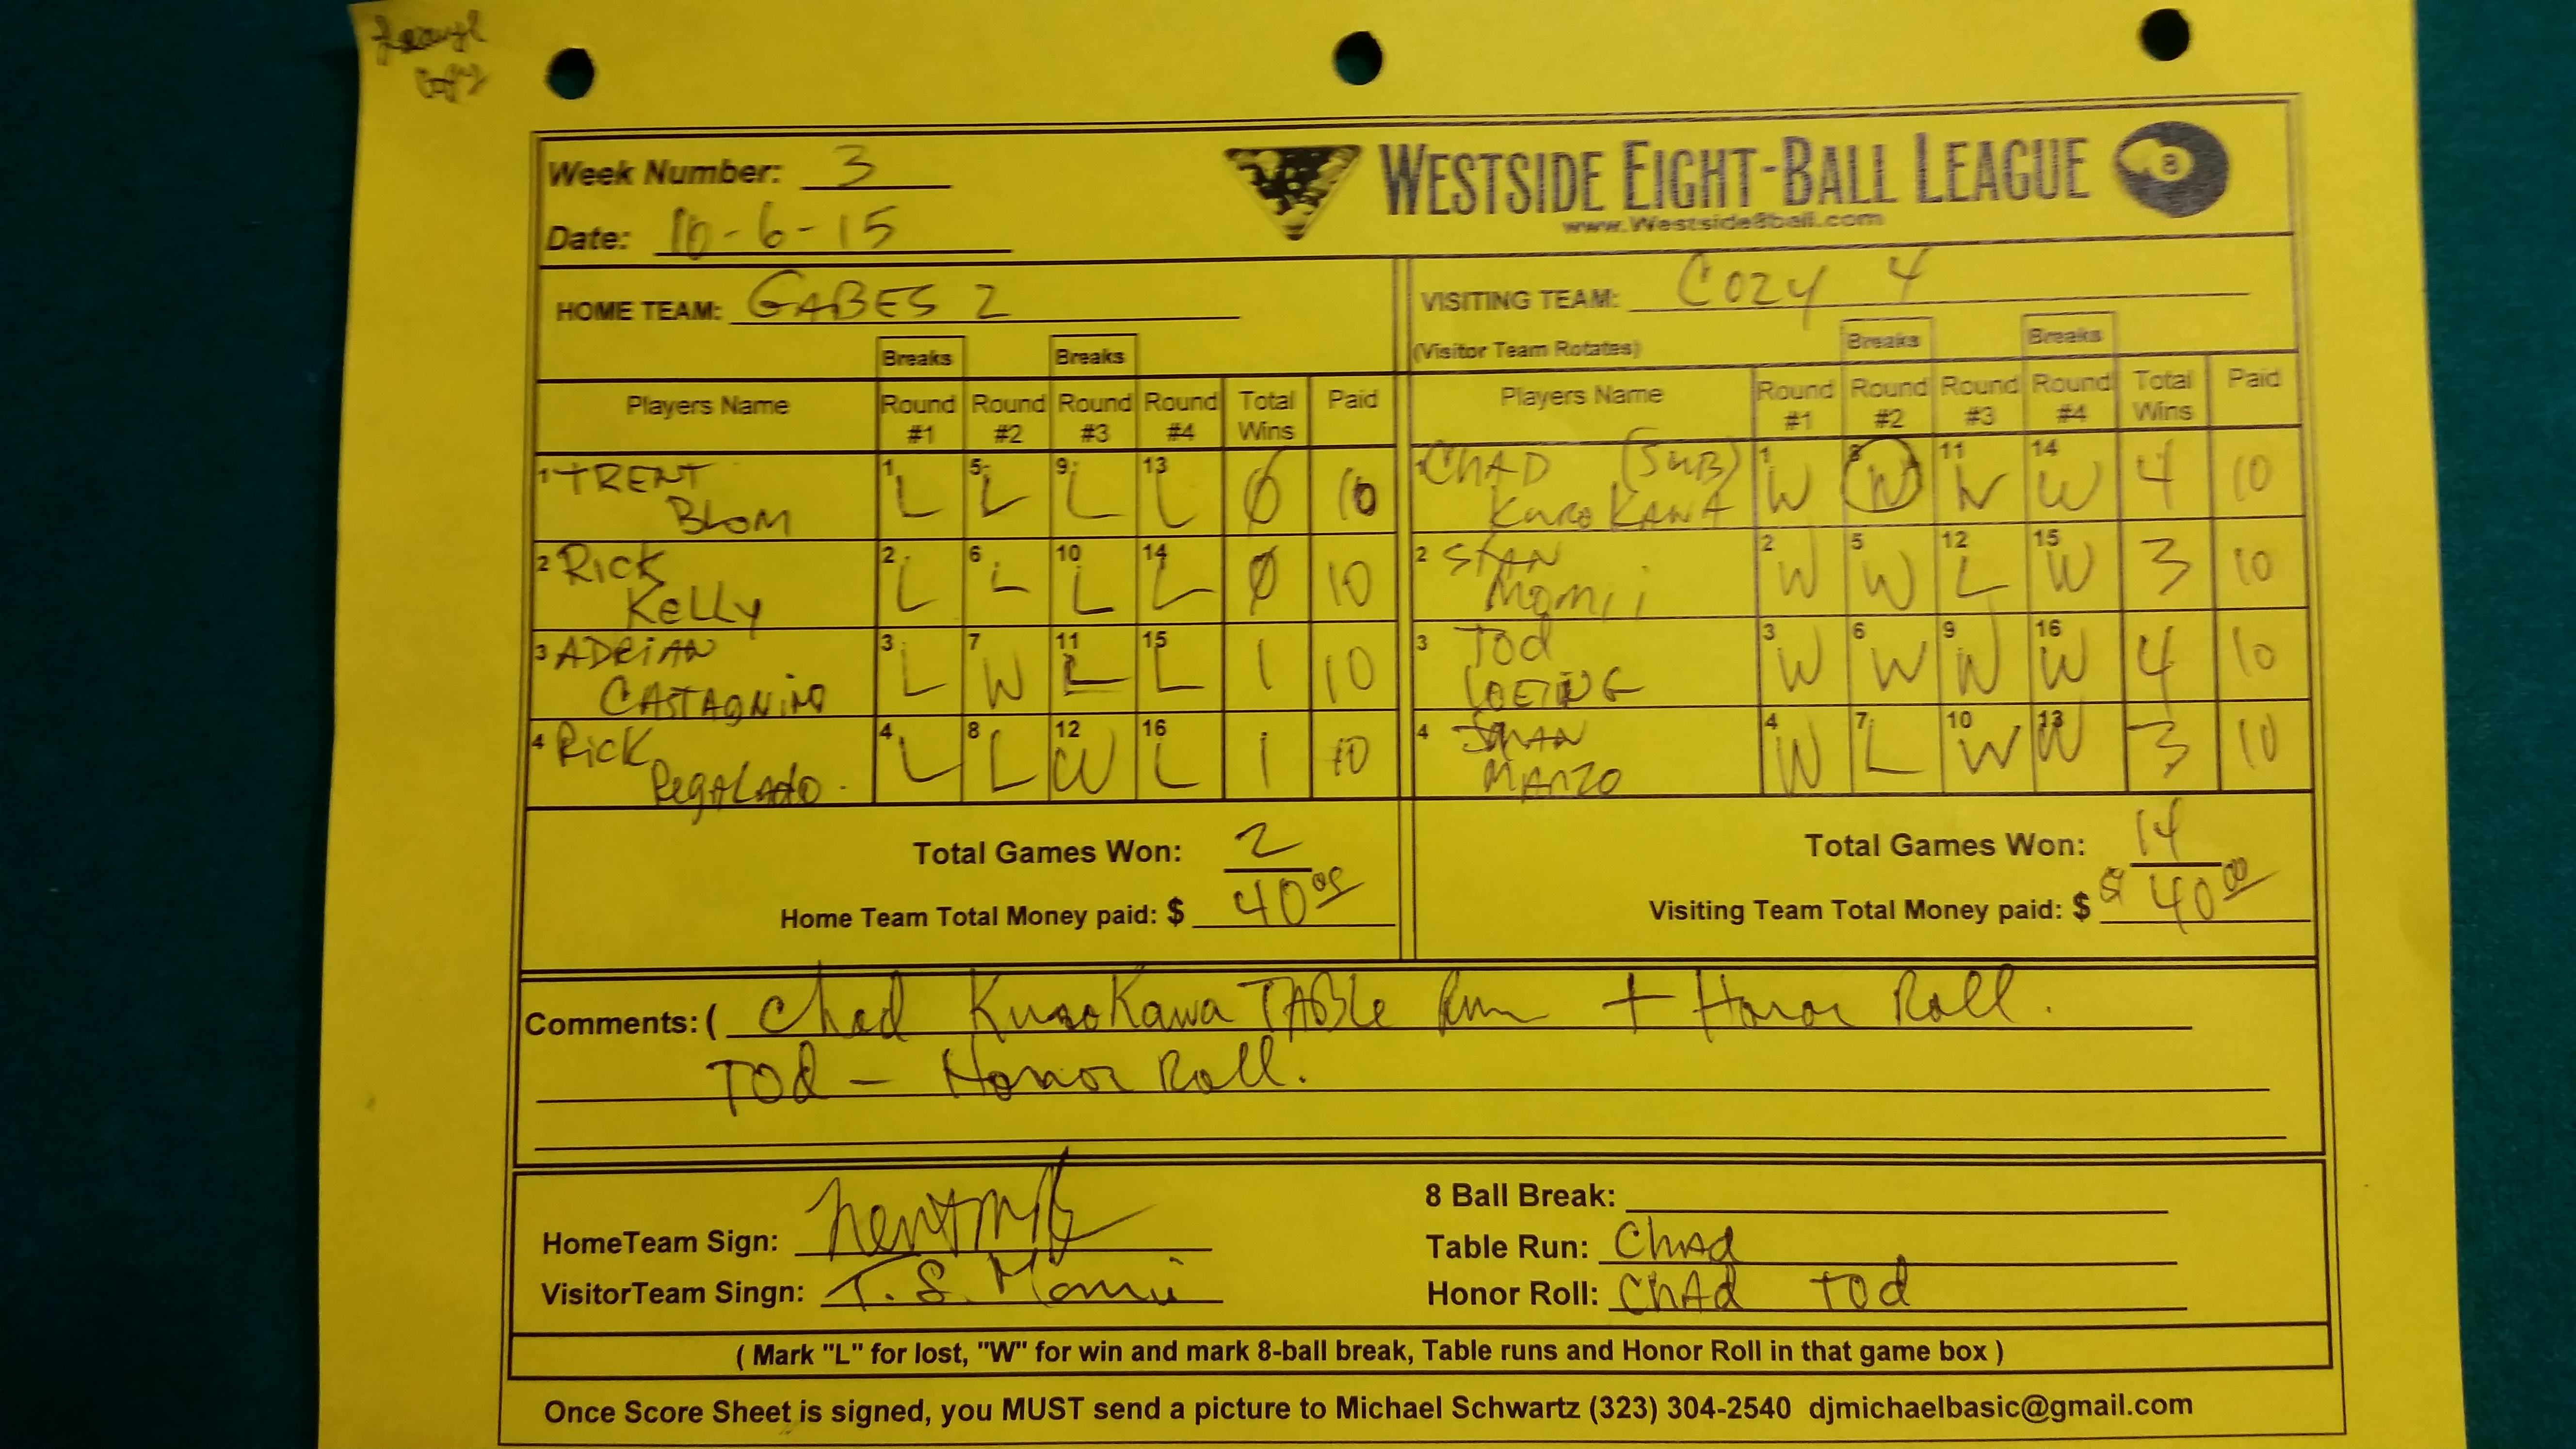 Week Number: 3
Date: 10-6-15
WESTSIDE EIGHT-BALL LEAGUE
8
www.Westside8ball.com
HOME TEAM: GABES 2
VISITING TEAM: COZY 4
(Visitor Team Rotates)
Breaks Breaks
Breaks Breaks
Players Name Round #1 Round #2 Round #3 Round #4 Total Wins Paid
1 TRENT BLOM 1 L 5 L 9 L 13 L 0 10
2 Rick Kelly 2 L 6 L 10 L 14 L 0 10
3 ADRIAN CASTAGNINO 3 L 7 W 11 L 15 L 1 10
4 Rick RegALAdO 4 L 8 L 12 W 16 L 1 10
Total Games Won: 2
Home Team Total Money paid: $ 40 00
Players Name Round #1 Round #2 Round #3 Round #4 Total Wins Paid
1 CHAD (SUB) KuroKAWA 1 W 8 W 11 W 14 W 4 10
2 STAN Momii 2 W 5 W 12 L 15 W 3 10
3 TOd 3 W 6 W 9 W 16 W 4 10
4 MANZO 4 W 7 L 10 W 13 W 3 10
Total Games Won: 14
Visiting Team Total Money paid: $ $ 40 00
Comments: ( Chad KuroKawa TABle Run + Honor Roll.
TOd - Honor Roll.
HomeTeam Sign:
VisitorTeam Singn: T. S. Momii
8 Ball Break:
Table Run: Chad
Honor Roll: ChAd TOd
( Mark "L" for lost, "W" for win and mark 8-ball break, Table runs and Honor Roll in that game box )
Once Score Sheet is signed, you MUST send a picture to Michael Schwartz (323) 304-2540 djmichaelbasic@gmail.com